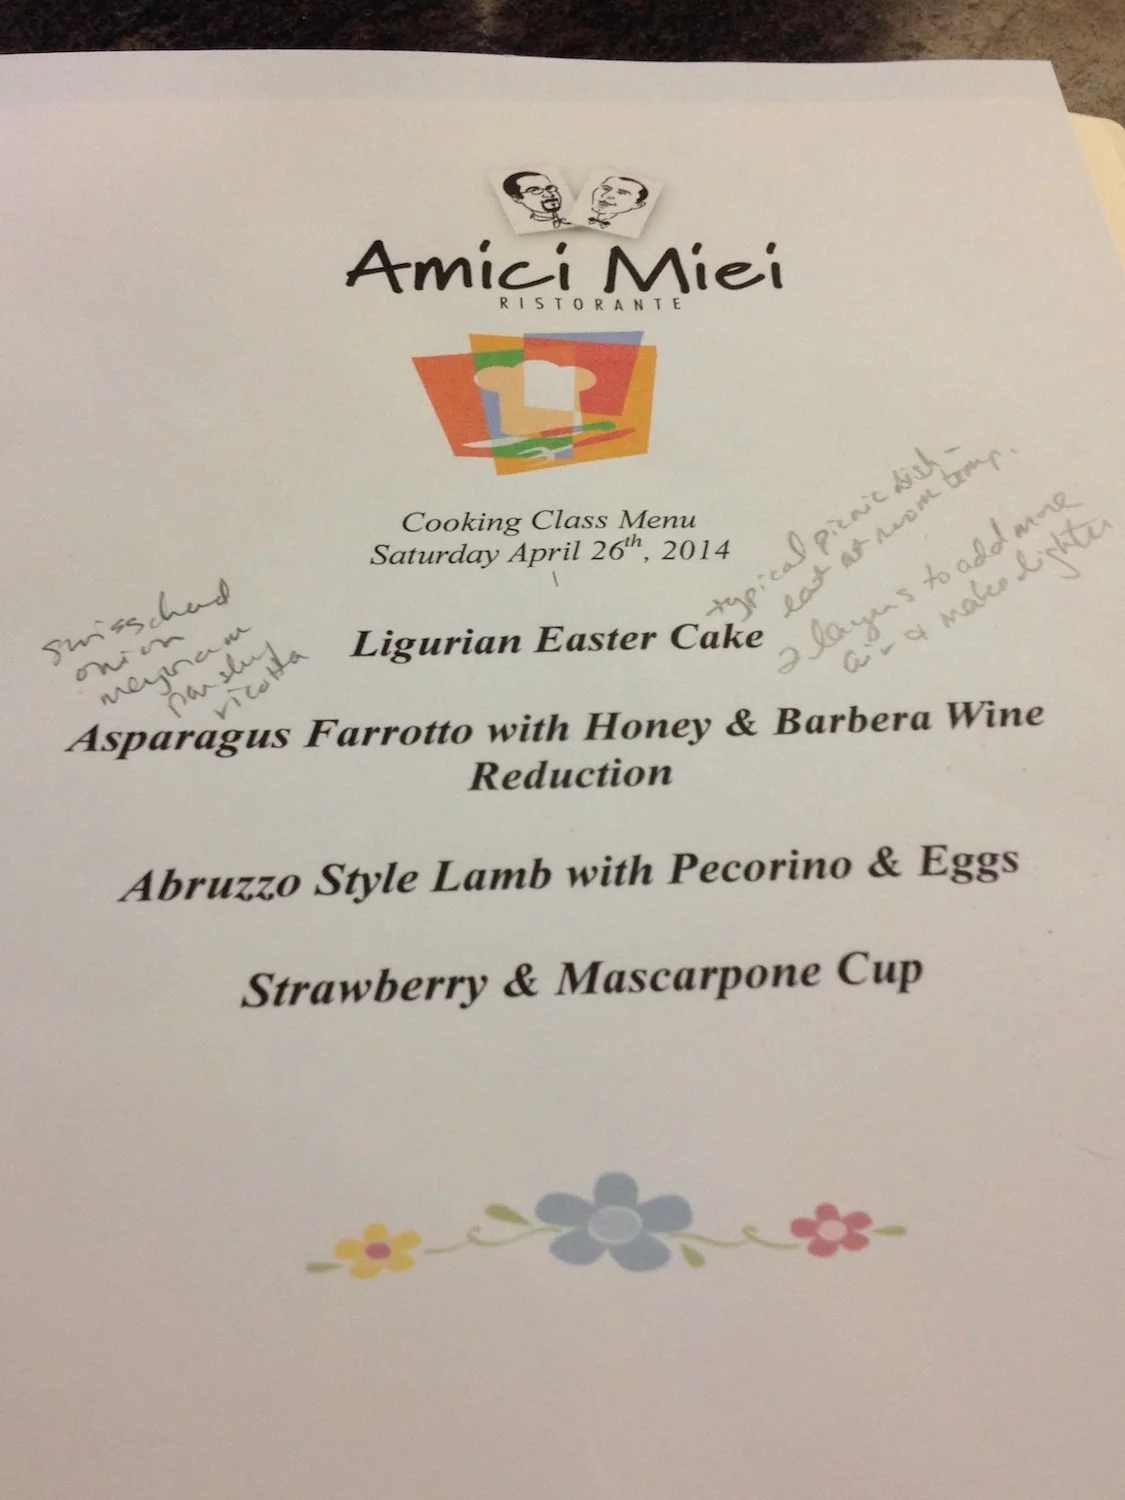 Amici Miei
RISTORANTE
Cooking Class Menu
Saturday April 26th, 2014
typical picnic dish -
eat at room temp.
2 layers to add more
air & make lighter
swisschard
onion
merjoram
parsley
ricotta
Ligurian Easter Cake
Asparagus Farrotto with Honey & Barbera Wine
Reduction
Abruzzo Style Lamb with Pecorino & Eggs
Strawberry & Mascarpone Cup